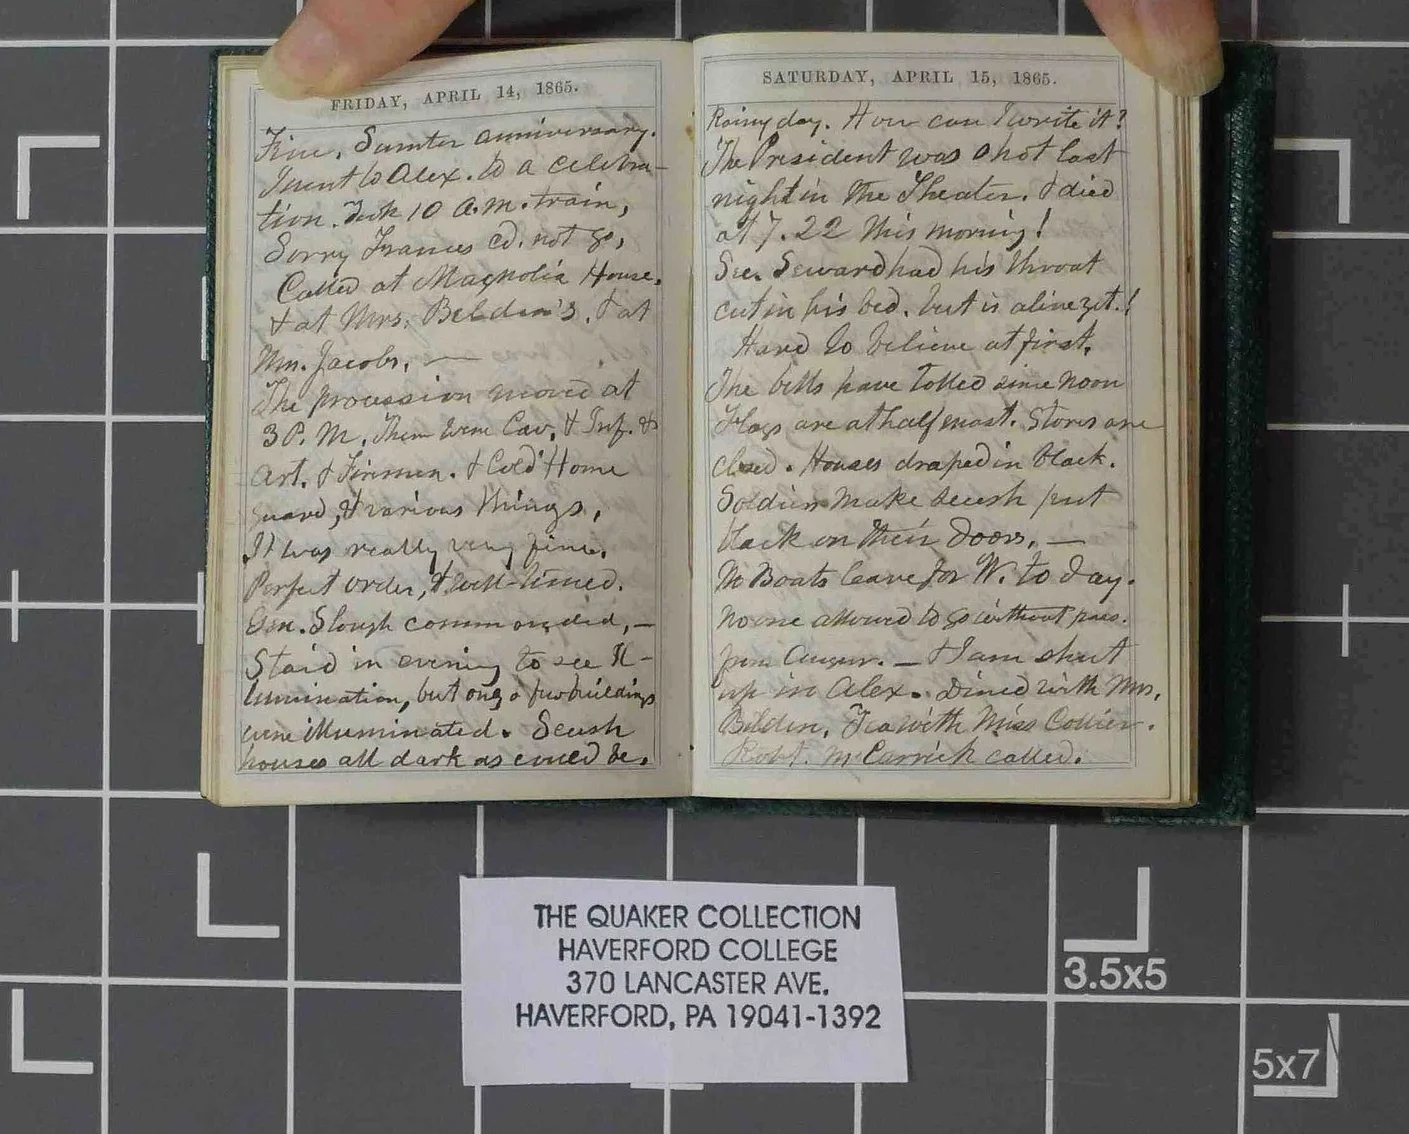 FRIDAY, APRIL 14, 1865.
Fine. Sumter anniversary.
I went to Alex. to a celebra-
tion. Took 10 A.M. train,
Sorry Frances cd. not go,
Called at Magnolia House.
& at Mrs. Belden's. & at
Mrs. Jacobs. —
The procession moved at
3 P.M. There were Cav. & Inf. &
Art. & Firemen. & Col'd Home
Guard, & various things,
It was really very fine.
Perfect order, & well-timed.
Gen. Slough commanded, —
Staid in evening to see Il-
lumination, but only a few buildings
were illuminated. Secesh
houses all dark as could be.
SATURDAY, APRIL 15, 1865.
Rainy day. How can I write it?
The President was shot last
night in the Theater. & died
at 7.22 this morning!
Sec. Seward had his throat
cut in his bed, but is alive yet!
Hard to believe at first.
The bells have tolled since noon
Flags are at half mast. Stores are
closed. Houses draped in black.
Soldiers make secesh put
black on their doors. —
No Boats leave for W. to day.
No one allowed to go without pass.
from Augur. — & I am shut
up in Alex. Dined with Mrs.
Belden. Tea with Miss Collier.
Robt. McCarrick called.
THE QUAKER COLLECTION
HAVERFORD COLLEGE
370 LANCASTER AVE.
HAVERFORD, PA 19041-1392
3.5x5
5x7